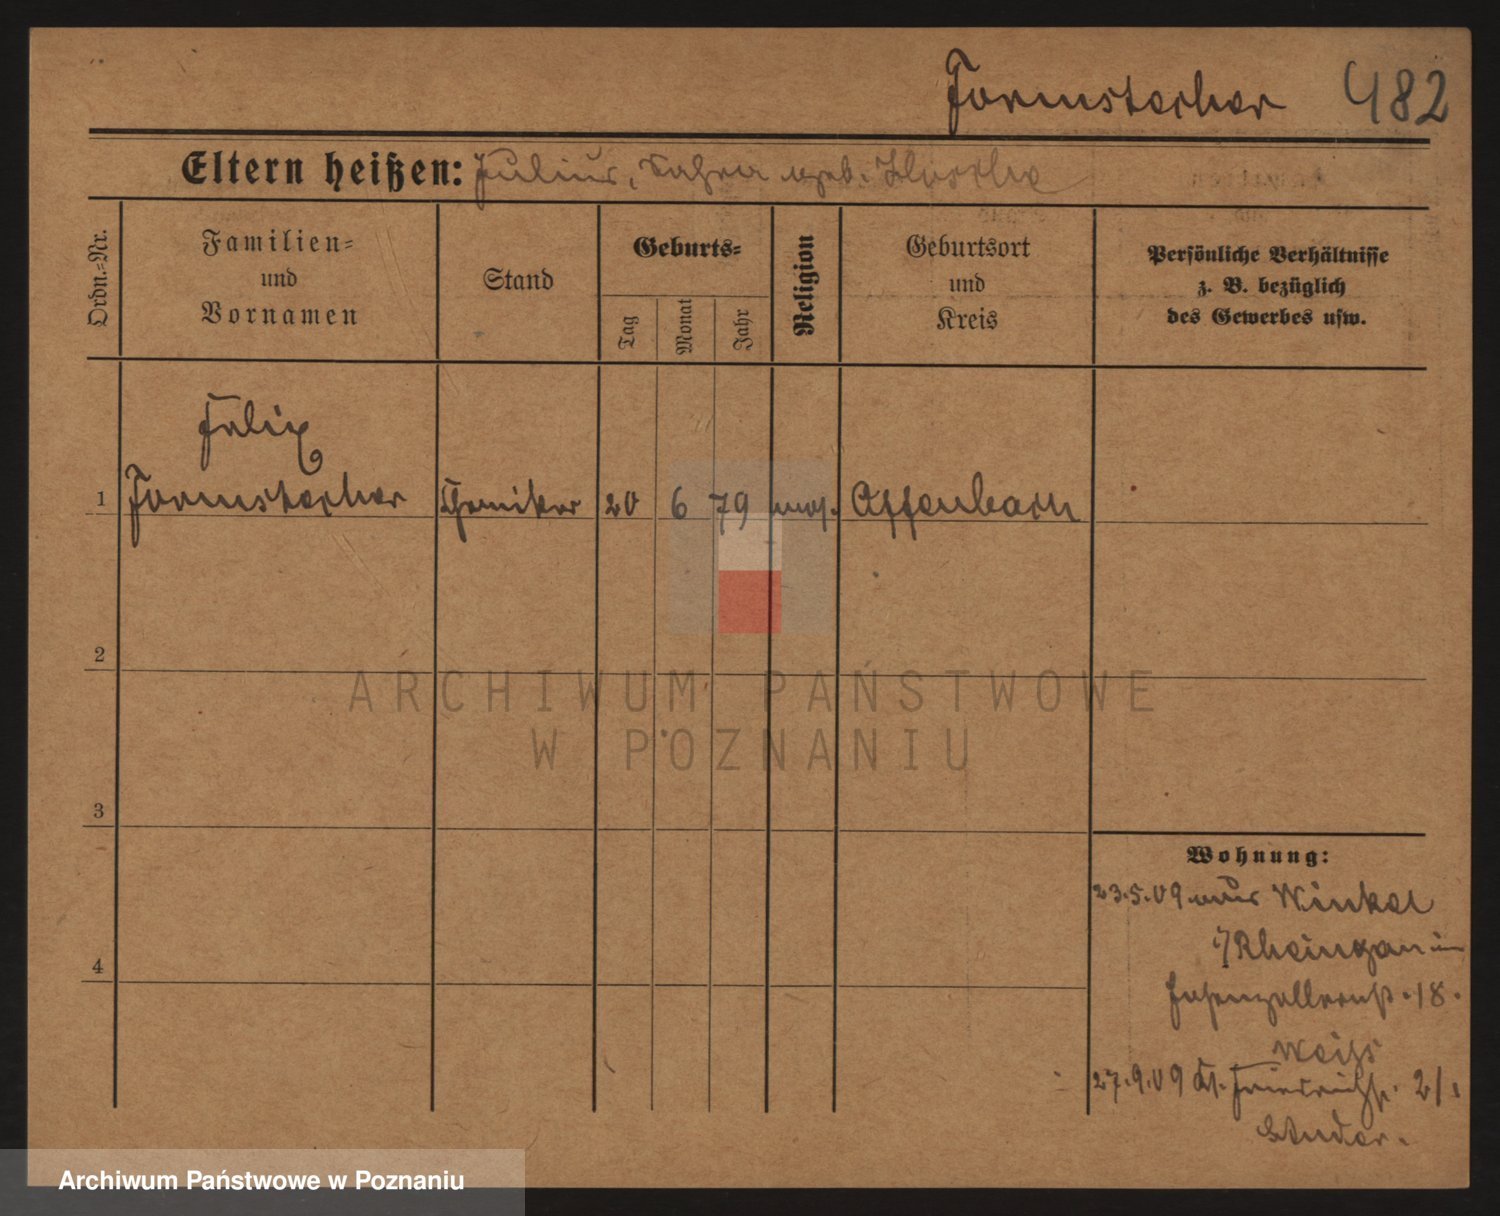 Formstecher 482
Eltern heißen: Julius, geb.
Ordn.=Nr.
Familien=
und
Vornamen
Stand
Geburts=
Tag
Monat
Jahr
Religion
Geburtsort
und
Kreis
Persönliche Verhältnisse
z. B. bezüglich
des Gewerbes usw.
Felix
1 Formstecher Chemiker 20 6 79 mos. Offenbach
2
ARCHIWUM PAŃSTWOWE
W POZNANIU
3
Wohnung:
23.5.09 aus Winkel
i/Rheingau in
Hohenzollernst. 18.
Weiss
4
27.9.09 Kl. 2/
Archiwum Państwowe w Poznaniu